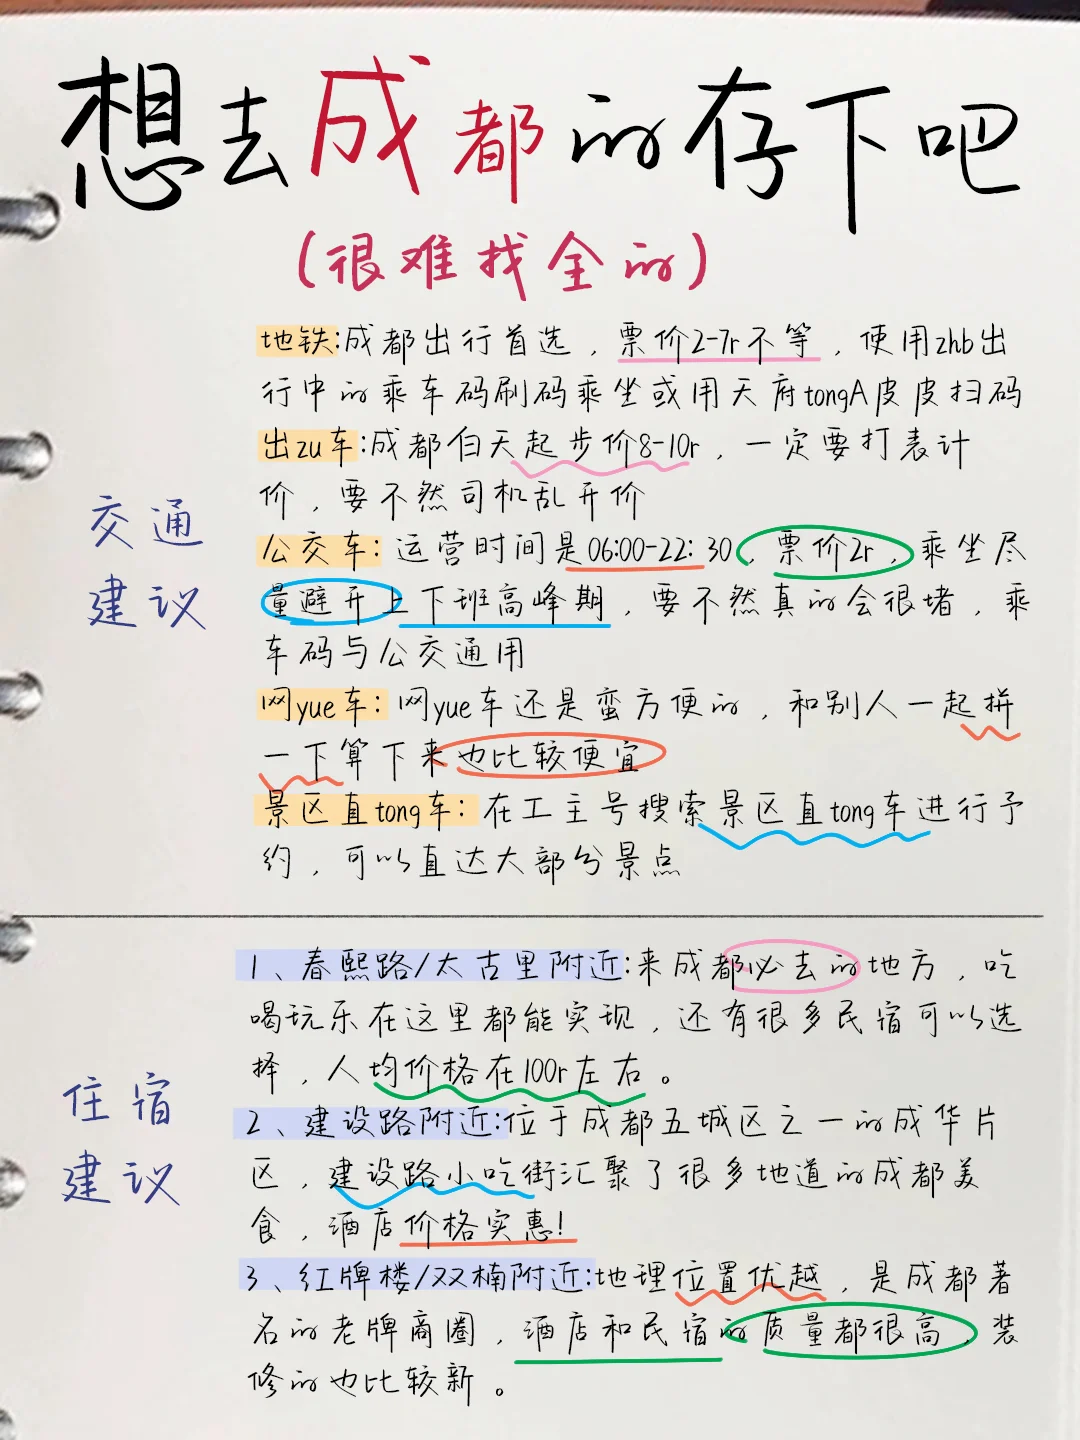 想去成都的存下吧
(很难找全的)
交通
建议
地铁:成都出行首选，票价2-7r不等，使用zhb出
行中的乘车码刷码乘坐或用天府tongA皮皮扫码
出zu车:成都白天起步价8-10r，一定要打表计
价，要不然司机乱开价
公交车:运营时间是06:00-22:30，票价2r，乘坐尽
量避开上下班高峰期，要不然真的会很堵，乘
车码与公交通用
网yue车:网yue车还是蛮方便的，和别人一起拼
一下算下来也比较便宜
景区直tong车:在工主号搜索景区直tong车进行予
约，可以直达大部分景点
住宿
建议
1、春熙路/太古里附近:来成都必去的地方，吃
喝玩乐在这里都能实现，还有很多民宿可以选
择，人均价格在100r左右。
2、建设路附近:位于成都五城区之一的成华片
区，建设路小吃街汇聚了很多地道的成都美
食，酒店价格实惠!
3、红牌楼/双楠附近:地理位置优越，是成都著
名的老牌商圈，酒店和民宿的质量都很高，装
修的也比较新。